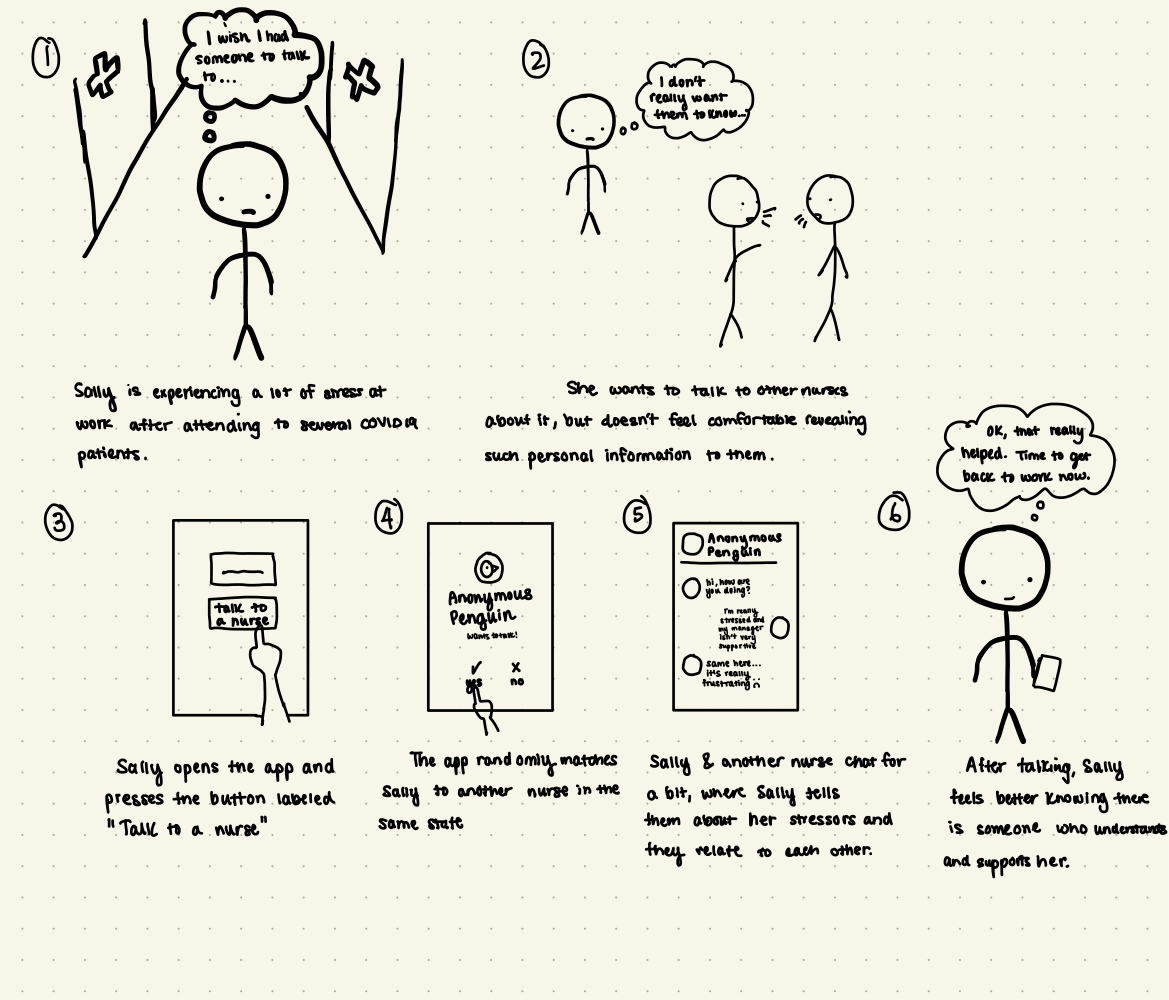 1
I wish I had
someone to talk
to...
Sally is experiencing a lot of stress at
work after attending to several COVID19
patients.
2
I don't
really want
them to know...
She wants to talk to other nurses
about it, but doesn't feel comfortable revealing
such personal information to them.
3
talk to
a nurse
Sally opens the app and
presses the button labeled
"Talk to a nurse"
4
Anonymous
Penguin
wants to talk!
✓ x
yes no
The app randomly matches
Sally to another nurse in the
same state
5
Anonymous
Penguin
hi, how are
you doing?
I'm really
stressed and
my manager
isn't very
supportive
same here...
it's really
frustrating :(
Sally & another nurse chat for
a bit, where Sally tells
them about her stressors and
they relate to each other.
6
OK, that really
helped. Time to get
back to work now.
After talking, Sally
feels better knowing there
is someone who understands
and supports her.